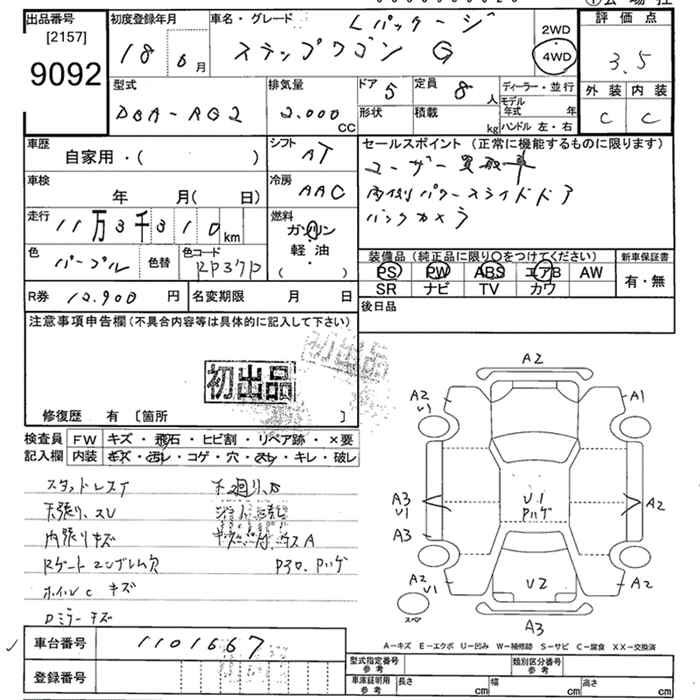 出品番号
[2157]
9092
初度登録年月
18 6月
車名・グレード
Lパッケージ
ステップワゴン G
2WD
4WD
評価点
3.5
外装 内装
C C
型式
DBA-RG2
排気量
2.000
CC
ドア
5
定員
8人
形状
積載
kg
ディーラー・並行
モデル年式 年
ハンドル 左・右
車歴
自家用・( )
シフト
AT
車検
年 月( 日)
冷房
AAC
走行
11万3千310km
燃料
ガソリン
軽油
・
( )
色
パープル
色替
色コード
RP37P
R券 12.900 円
名変期限 月 日
セールスポイント (正常に機能するものに限ります)
ユーザー買取車
両側パワースライドドア
バックカメラ
装備品 (純正品に限り○をつけてください)
PS PW ABS エアB AW
SR ナビ TV カワ
新車保証書
有・無
後日品
注意事項申告欄(不具合内容等は具体的に記入して下さい)
初出品
初出品
修復歴 有 〔箇所 〕
検査員
記入欄
FW キズ・飛石・ヒビ割・リペア跡・×要
内装 キズ・汚レ・コゲ・穴・スレ・キレ・破レ
スタッドレスT
天張り、スレ
内張りキズ
Rゲートエンブレム穴
ホイルC キズ
Dミラーキズ
下廻り、S
P30. Pハゲ
A2
A2
U1
A1
A3
U1
A3
U1
Pハゲ
A2
A2
U1
U2
A2
スペア
A3
A-キズ E-エクボ U-凹み W-補修跡 S-サビ C-腐食 XX-交換済
車台番号
1101667
登録番号
型式指定番号
参考
類別区分番号
参考
車庫証明用
参考
長さ cm
幅 cm
高さ cm